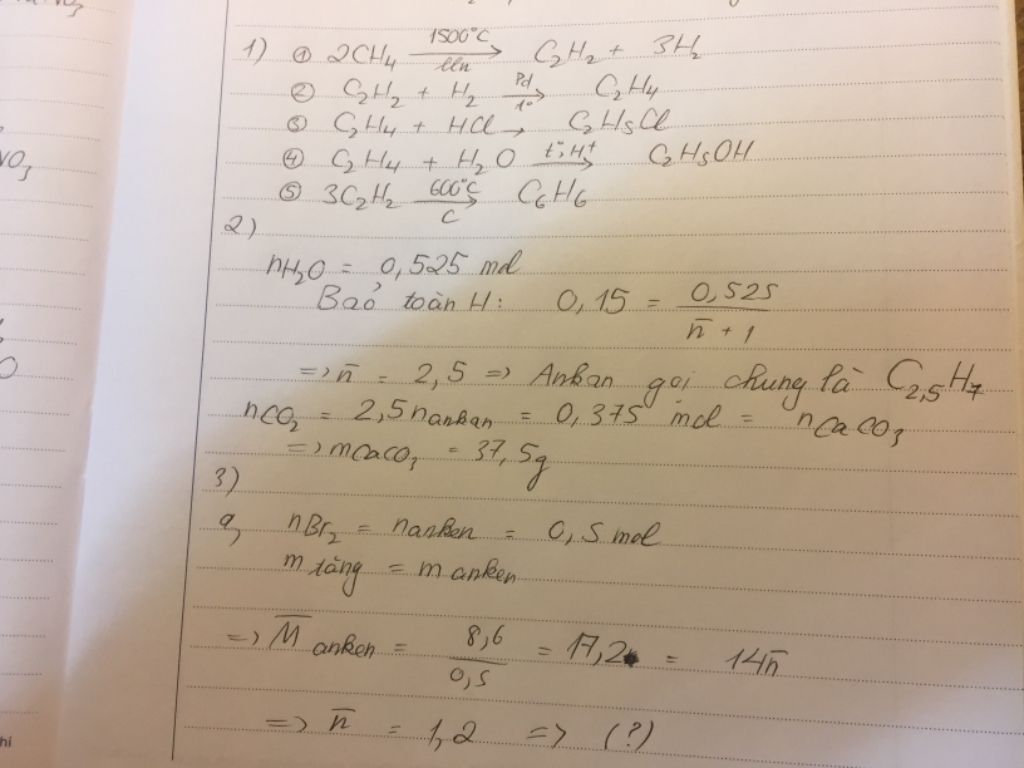 NO₃
1) ① 2CH₄ 1500°C lln → C₂H₂ + 3H₂
② C₂H₂ + H₂ Pd t° → C₂H₄
③ C₂H₄ + HCl → C₂H₅Cl
④ C₂H₄ + H₂O t°, H⁺ → C₂H₅OH
⑤ 3C₂H₂ 600°C C → C₆H₆
2)
nH₂O = 0,525 mol
Bảo toàn H: 0,15 = 0,525 / n̄ + 1
=> n̄ = 2,5 => Ankan gọi chung là C₂,₅H₇
nCO₂ = 2,5nankan = 0,375 mol = nCaCO₃
=> mCaCO₃ = 37,5g
3)
a, nBr₂ = nanken = 0,5 mol
m tăng = m anken
=> M̄ anken = 8,6 / 0,5 = 17,2 = 14n̄
=> n̄ = 1,2 => (?)